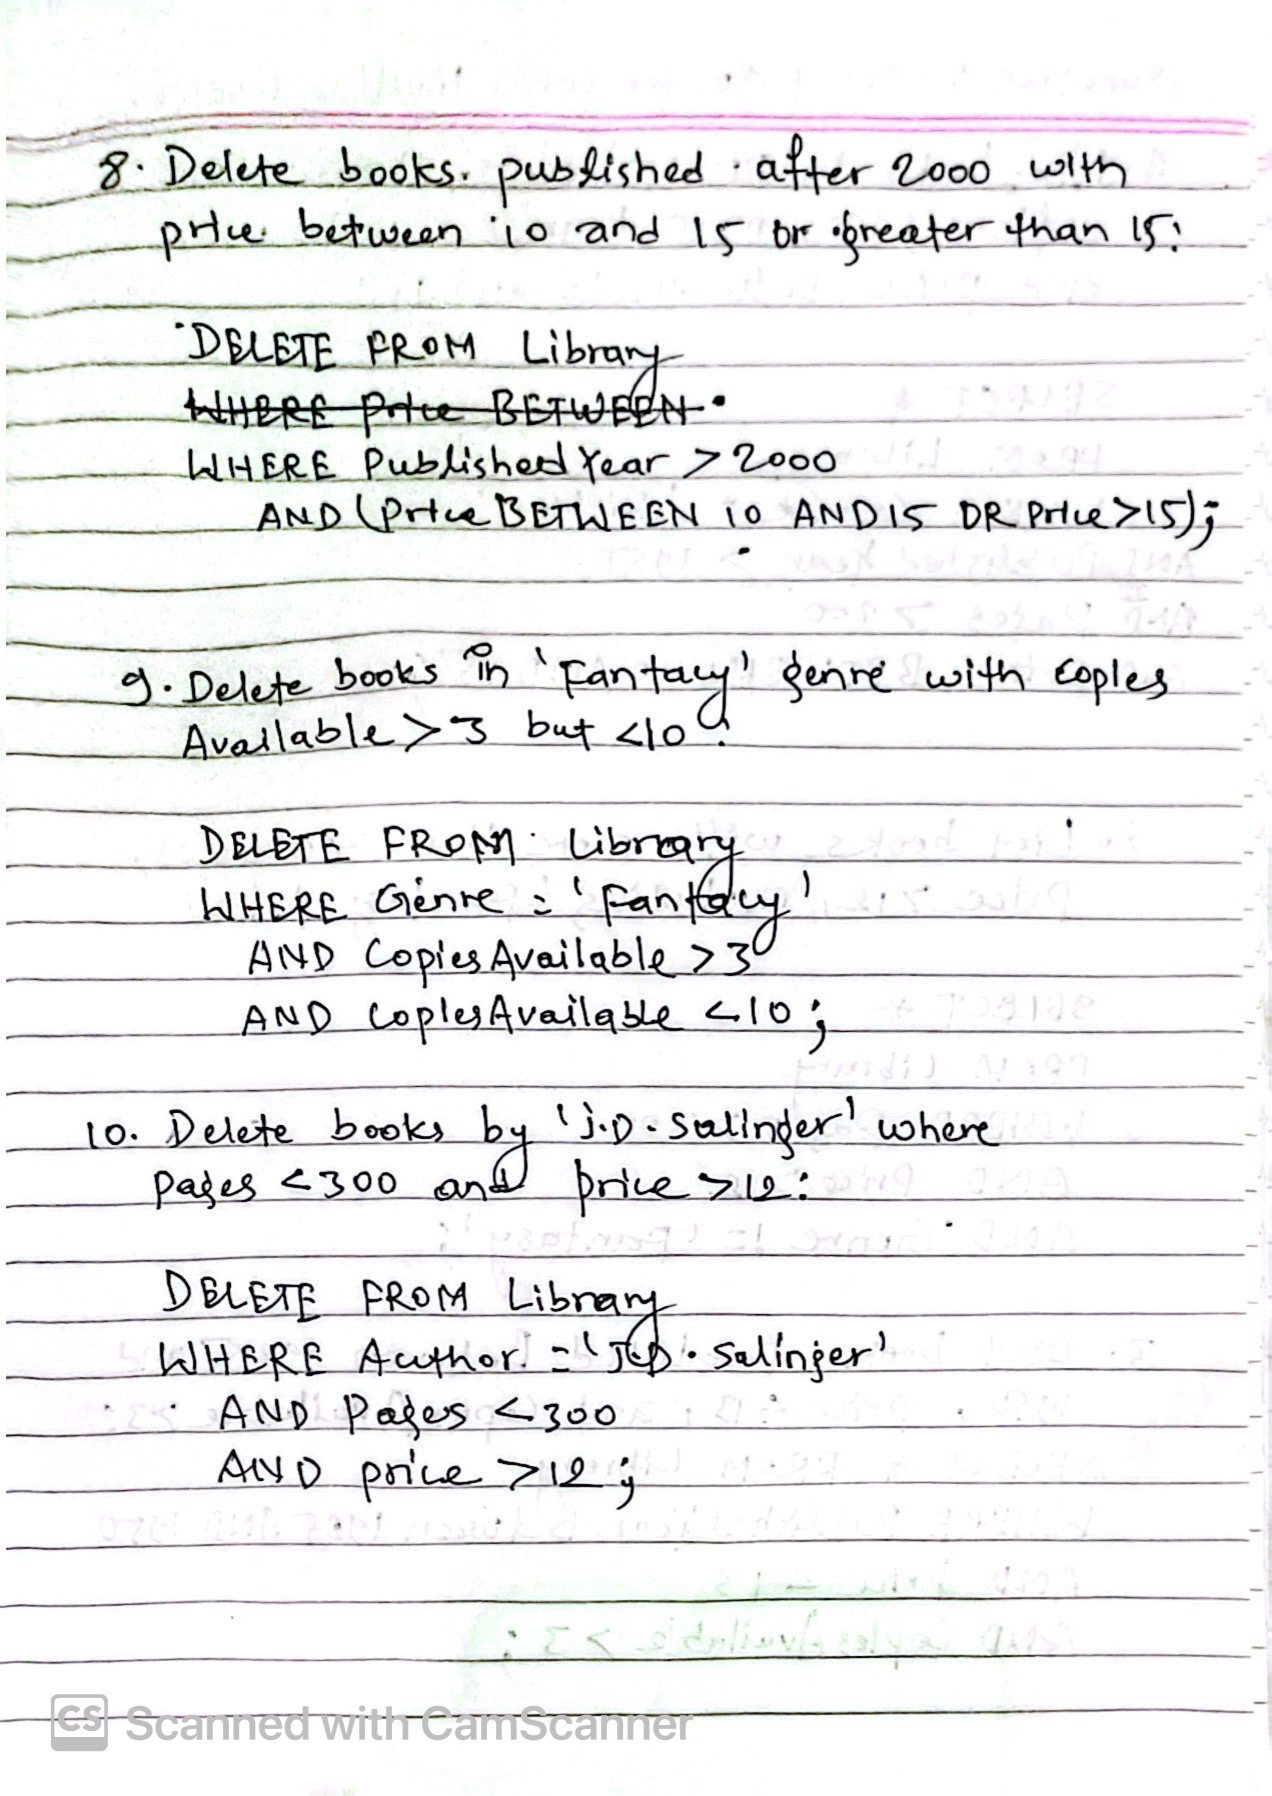 8. Delete books. published after 2000 with
price between 10 and 15 or greater than 15:
DELETE FROM Library
WHERE Price BETWEEN
WHERE Published Year > 2000
AND (Price BETWEEN 10 AND 15 OR Price > 15);
9. Delete books in 'Fantacy' genre with copies
Available > 3 but < 10:
DELETE FROM Library
WHERE Genre = 'Fantacy'
AND Copies Available > 3
AND Copies Available < 10;
10. Delete books by 'J.D. Salinger' where
Pages < 300 and price > 12:
DELETE FROM Library
WHERE Author = 'J.D. Salinger'
AND Pages < 300
AND price > 12;
CS Scanned with CamScanner